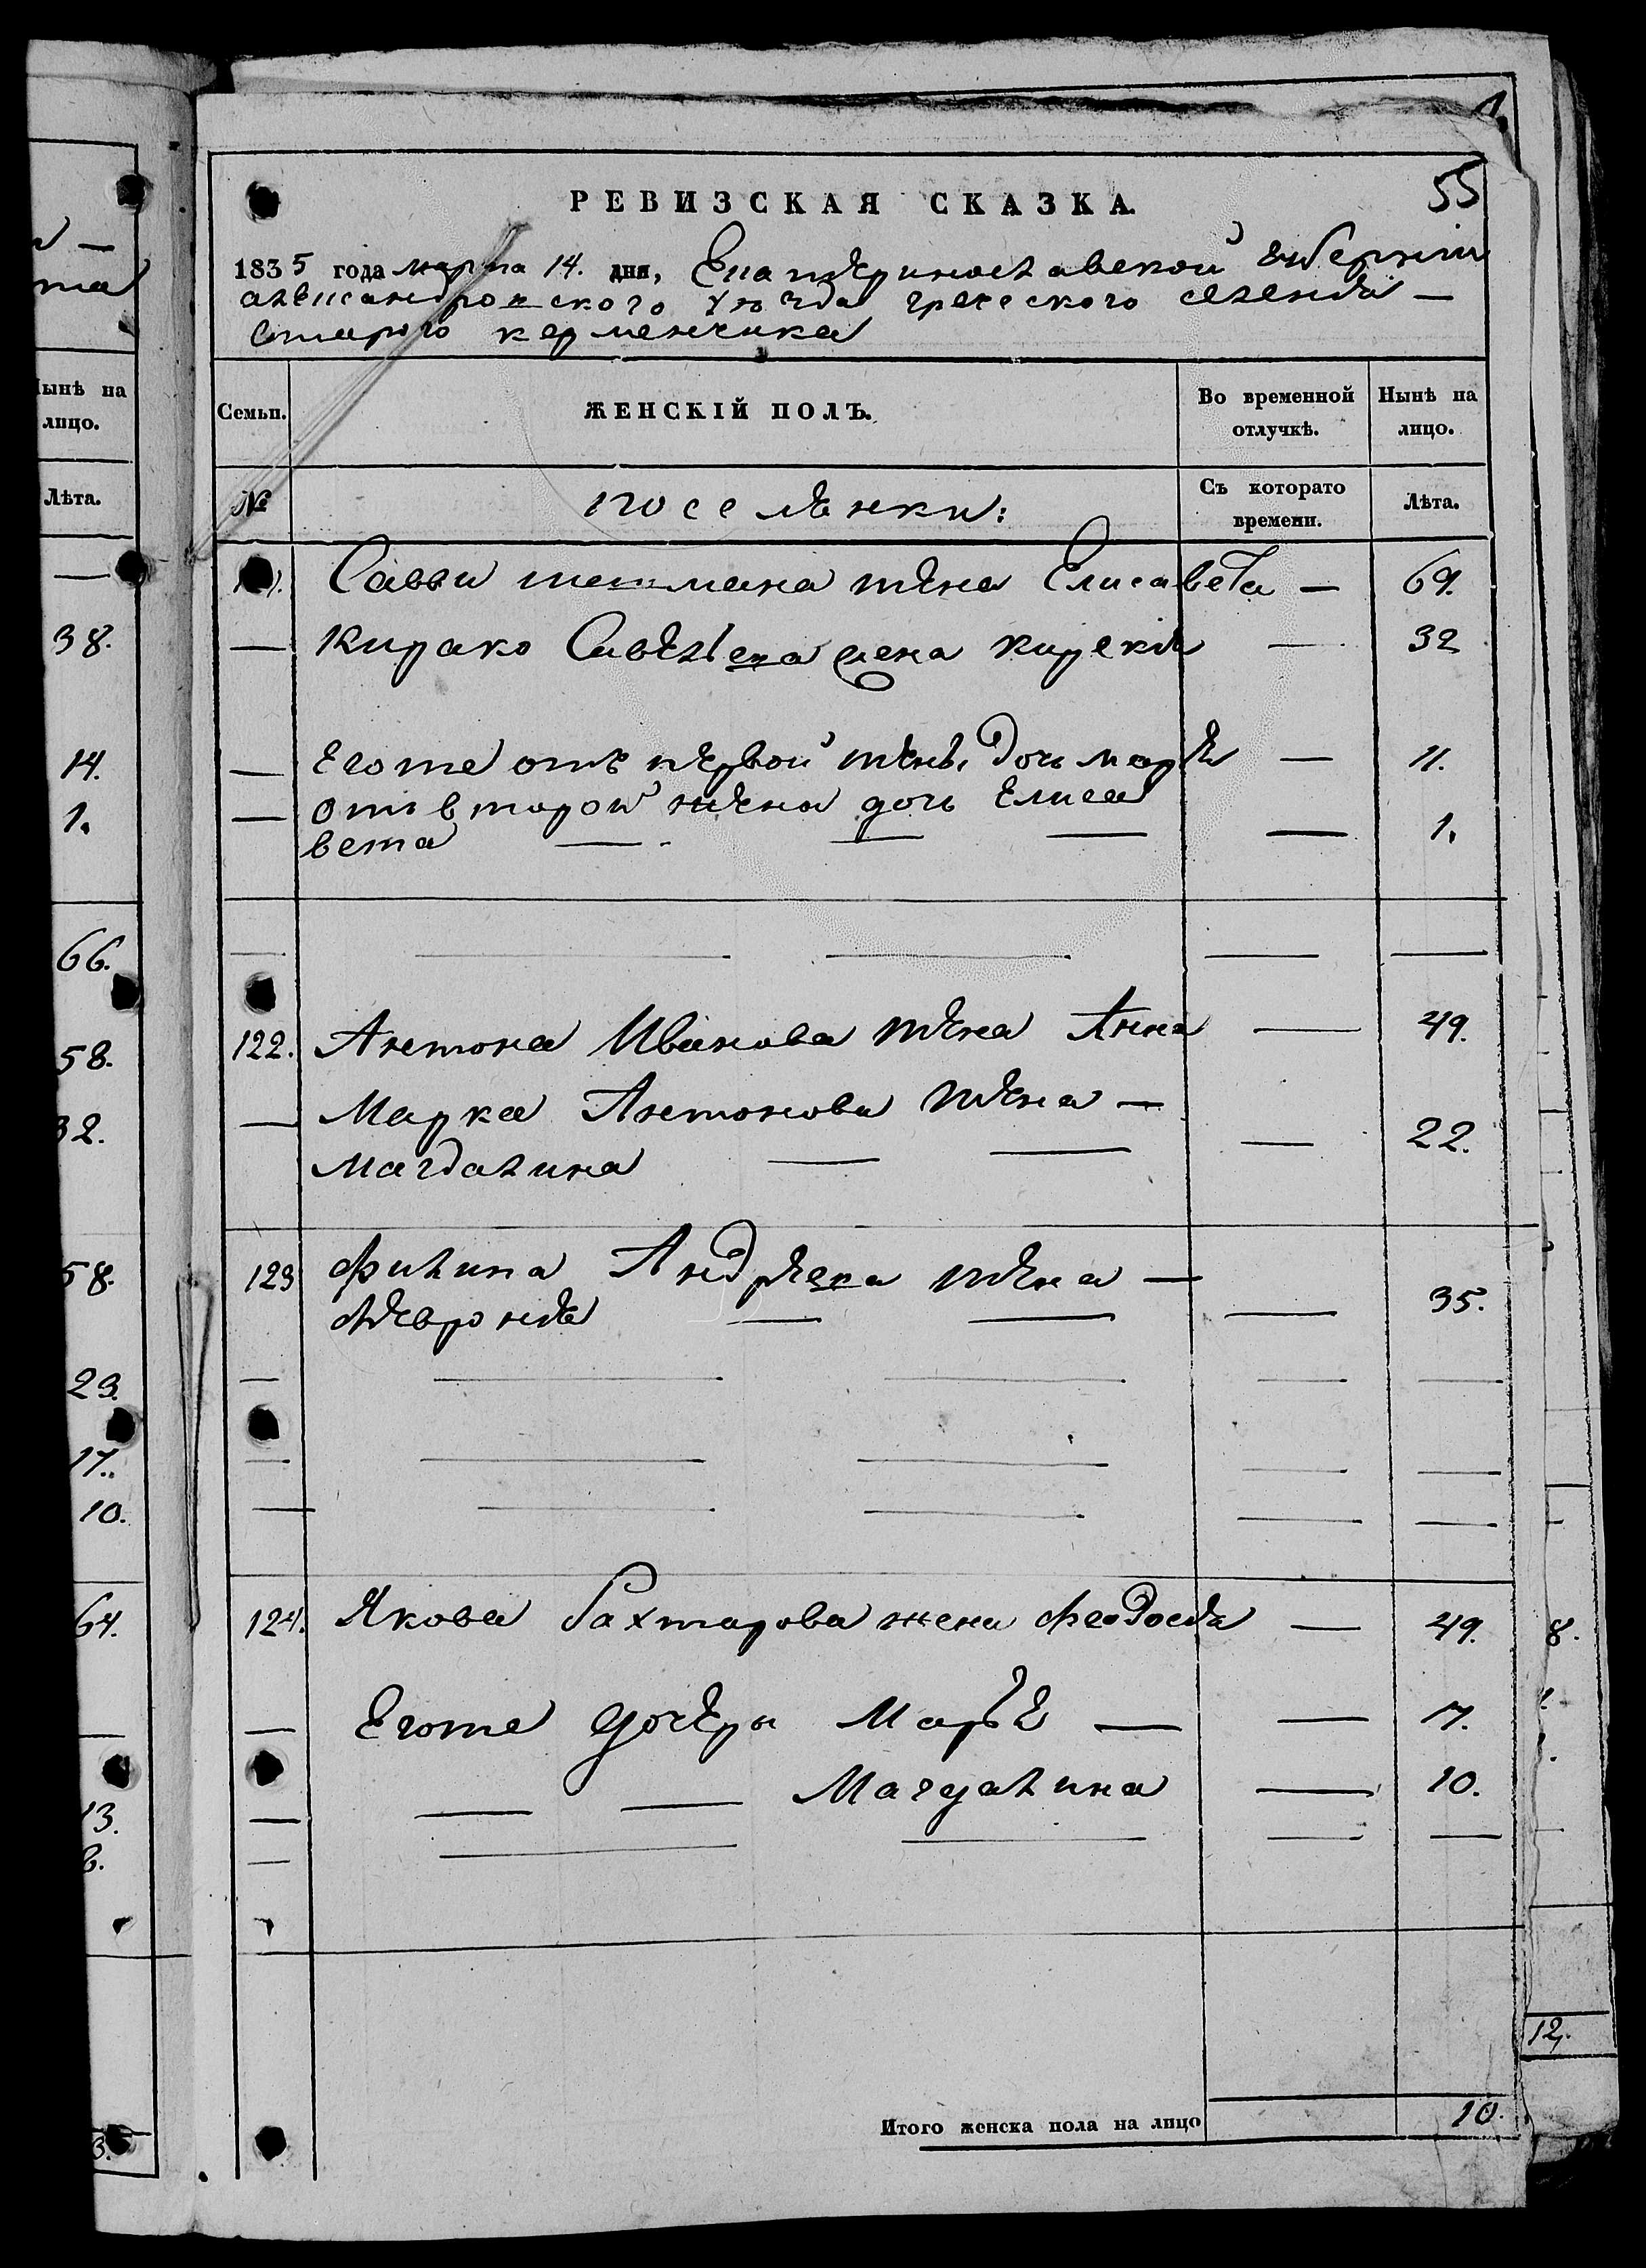 55
РЕВИЗСКАЯ СКАЗКА.
1835 года марта 14. дня, Екатеринославской губернии
александровского уезда греческого селенія —
Старого керменчика
Семьи. ЖЕНСКІЙ ПОЛЪ. Во временной отлучкѣ. Нынѣ на лицо.
№ поселенки: Съ котораго времени. Лѣта.
Савви жена Елисавета — 69.
— Кирако жена — 32
— Егоже отъ первой жены дочь марія — 11.
— отъ второй жены дочь Елиса
вета — — — — 1.
— — — — —
122. Антона Иванова жена Анна — 49.
— Марка Антонова жена —
Магдалина — — — 22.
123 филипа Андрейка жена —
февронія — — — 35.
— — — — —
— — — — —
— — — — —
124. Якова Бахтарова жена феодосія — 49.
— Егоже дочери Марія — — 17.
— — — Магдалина — 10.
— — — — —
Итого женска пола на лицо 10.
Нынѣ на
лицо.
Лѣта.
—
38.
14.
1.
66.
58.
32.
58.
29.
17.
10.
64.
—
13.
8.
12.